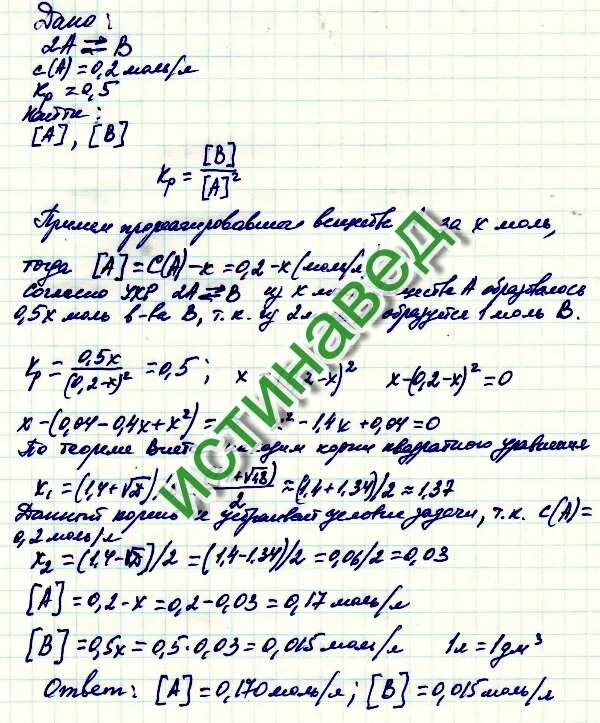 Дано:
2A ⇄ B
c(A) = 0,2 моль/л
Kр = 0,5
Найти:
[A], [B]
Kр = [B]/[A]²
Примем прореагировавшего вещества за x моль,
тогда [A] = C(A) – x = 0,2 – x (моль/л
Согласно УХР 2A ⇄ B из x А образовалось
0,5x моль в-ва B, т.к. из 2 образуется 1 моль B.
Kр = 0,5x/(0,2–x)² = 0,5; x 2–x)² x–(0,2–x)² = 0
x – (0,04 – 0,4x + x²) = ² – 1,4x + 0,04 = 0
По теореме корни квадратного уравнения
x₁ = (1,4 + √D) +√1,8)/2 ≈ (1,4 + 1,34)/2 ≈ 1,37
Данный корень устраивает условие задачи, т.к. C(A) =
0,2 моль/л
x₂ = (1,4 – √D)/2 = (1,4 – 1,34)/2 = 0,06/2 = 0,03
[A] = 0,2 – x = 0,2 – 0,03 = 0,17 моль/л
[B] = 0,5x = 0,5·0,03 = 0,015 моль/л 1л = 1дм³
Ответ: [A] = 0,170 моль/л; [B] = 0,015 моль/л
истинавед